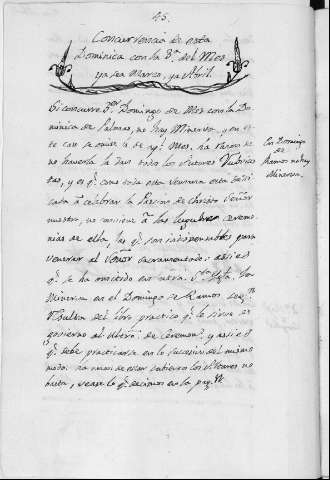 45.
Concurrencia de esta
Dominica con la 3ª del Mes
ya sea Marzo, ya Abril.
Si concurre 3er Domingo de Mes con la Do-
minica de Palmas, no hay Minerva, y en es-
te caso se omite la de aql Mes, la razon de
no haverla la dan todos los Autores
y es qe como toda esta semana esta dedi-
cada á celebrar la Pasion de Christo Señor
nuestro, no conviene á las lugubres ceremo-
nias de ella, las qe son indispensables para
venerar al Señor Sacramentado: assi es
qe se ha omitido en ntra. Sta Iga. la
Minerva en el Domingo de Ramos segn
resulta del libro practico qe le sirve de
govierno al Mtro. de Ceremons. y assi es
qe debe practicarse en lo sucesivo del mismo
modo: no han de estar cubiertos los Altares no
hasta, vease lo qe decimos en la pag.
En Domingo
de
Ramos no hay
Minerva.